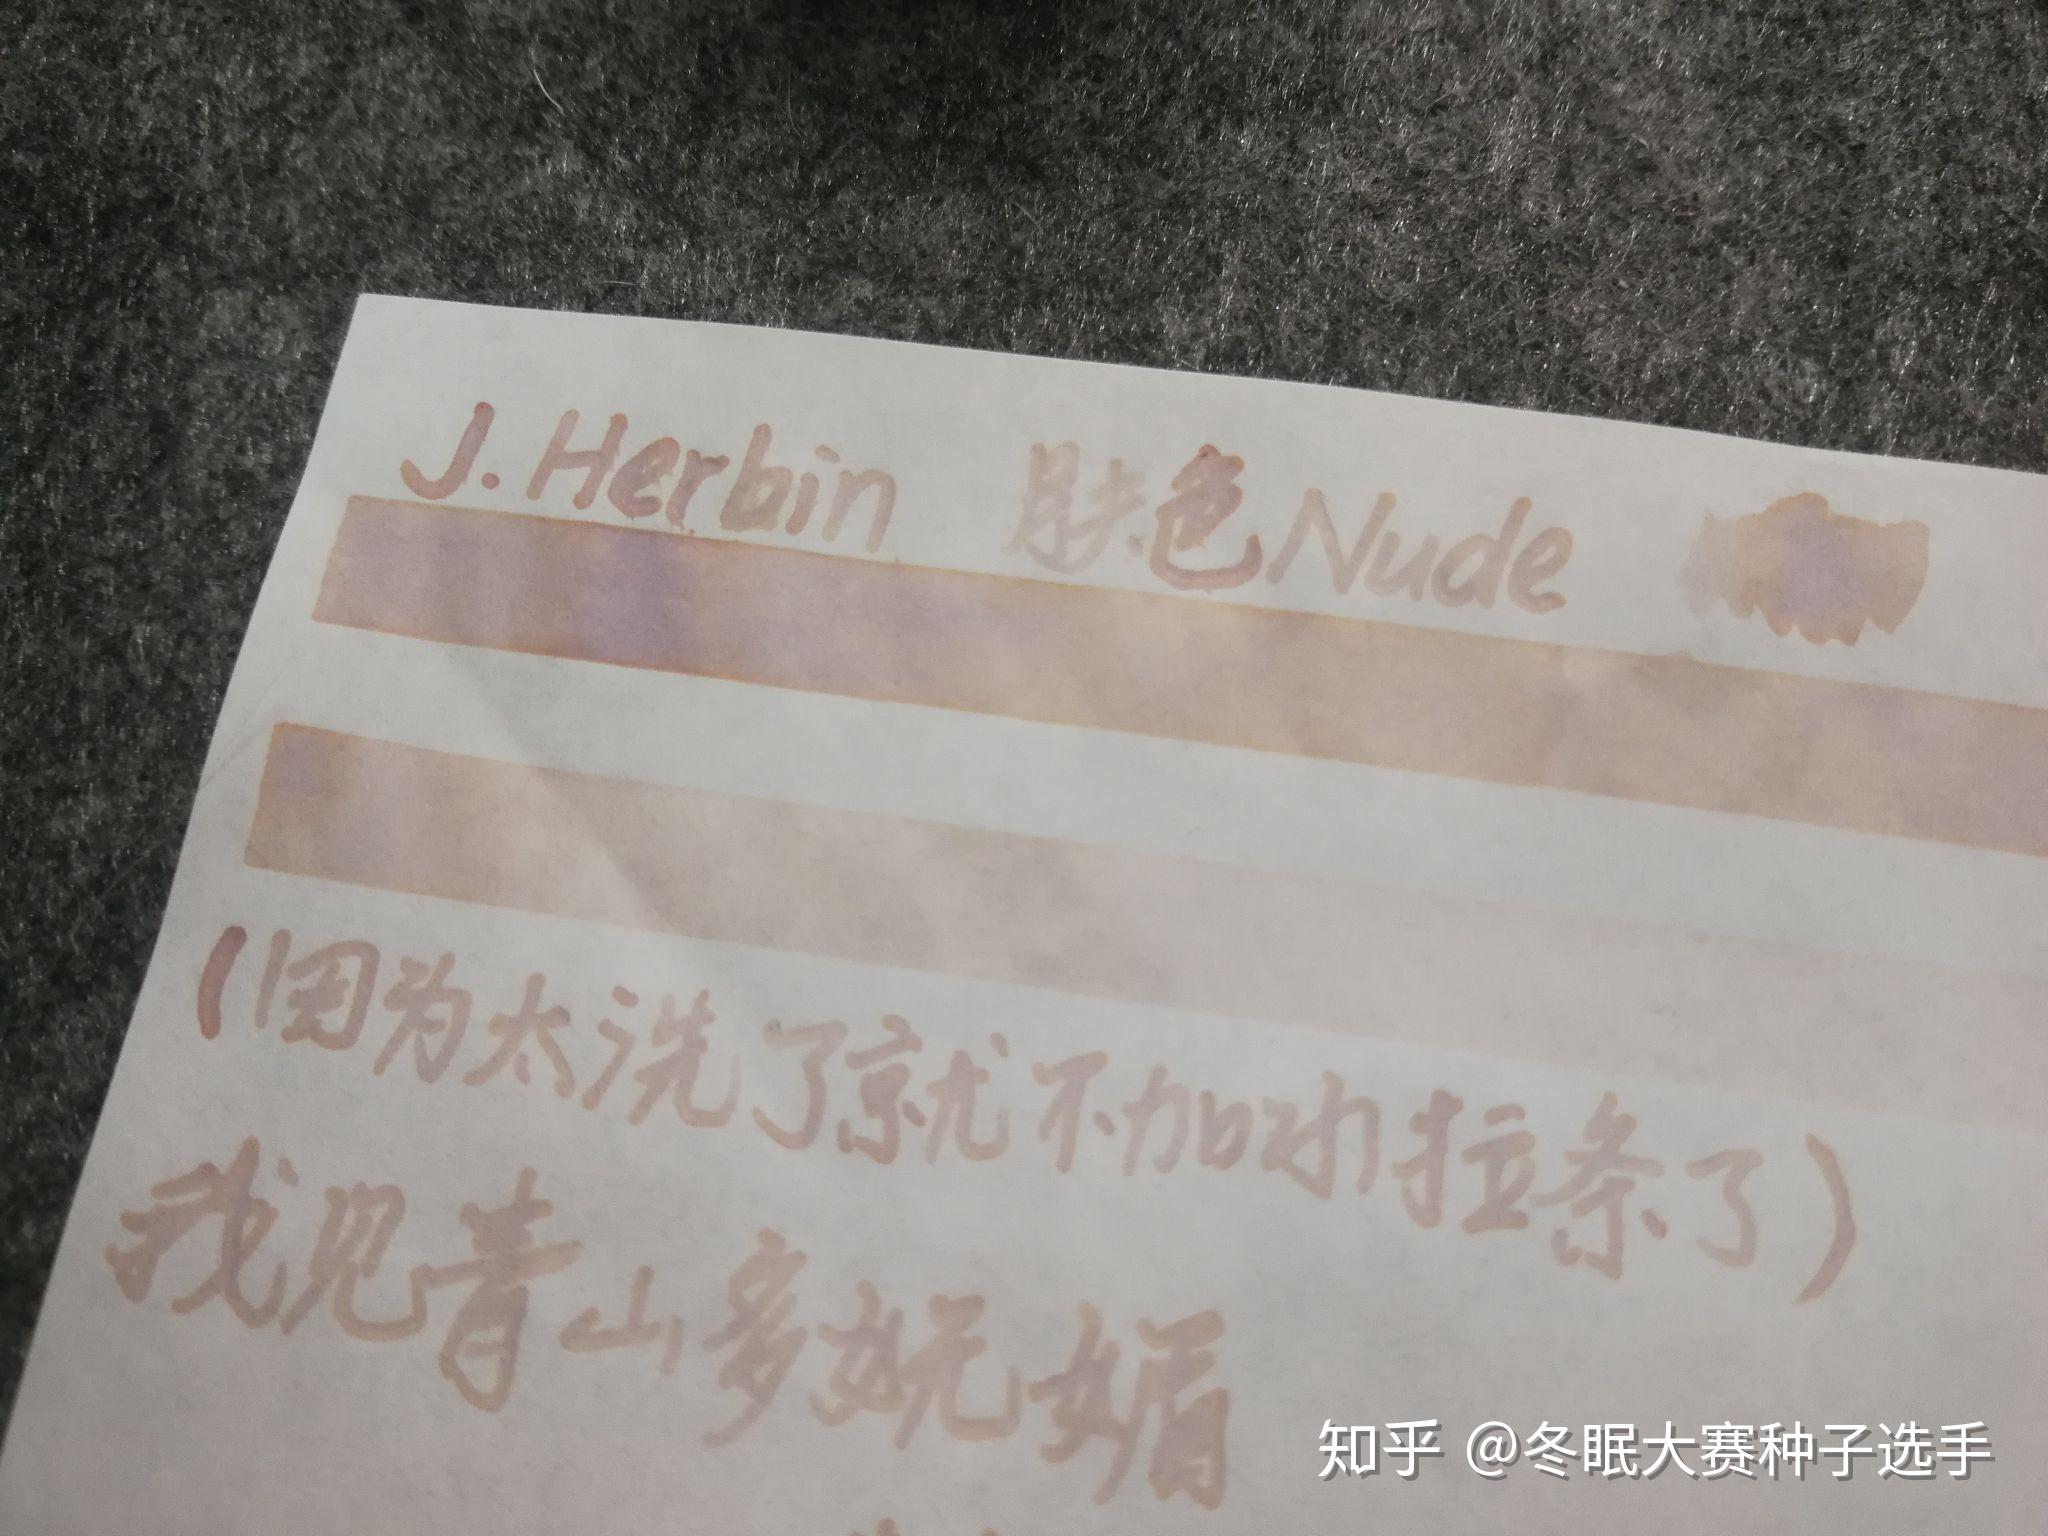 J. Herbin 肤色 Nude
(因为太浅了就不加水拉条了)
我见青山多妩媚
知乎 @冬眠大赛种子选手